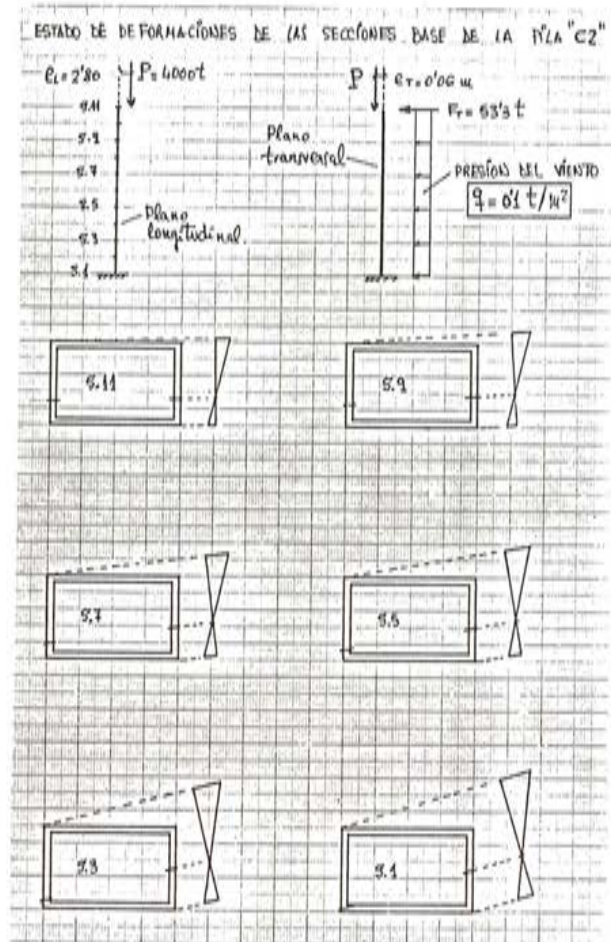 ESTADO DE DEFORMACIONES DE LAS SECCIONES BASE DE LA PILA "C2"
eL = 2'80 P = 4000t
P eT = 0'06 m
FT = 53'3 t
S.11
S.9
S.7
S.5
S.3
S.1
Plano
longitudinal
Plano
transversal
PRESIÓN DEL VIENTO
q = 0'1 t/m²
S.11
S.9
S.7
S.5
S.3
S.1